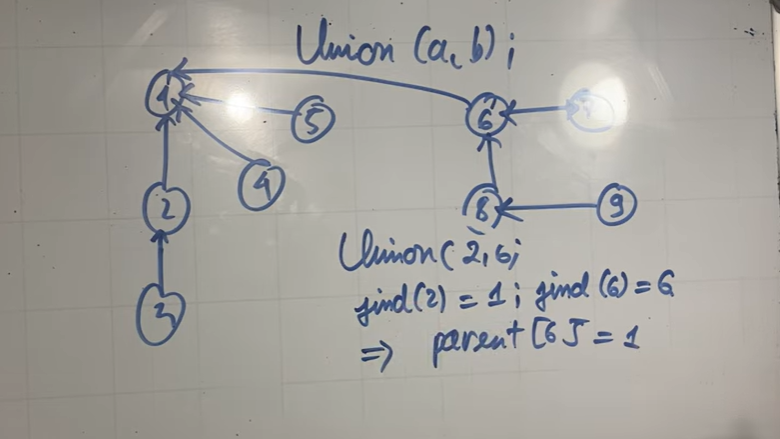 Union (a, b);
1
5
6
4
2
8
9
3
Union(2,6;
find(2) = 1; find(6) = 6
=> parent [6] = 1